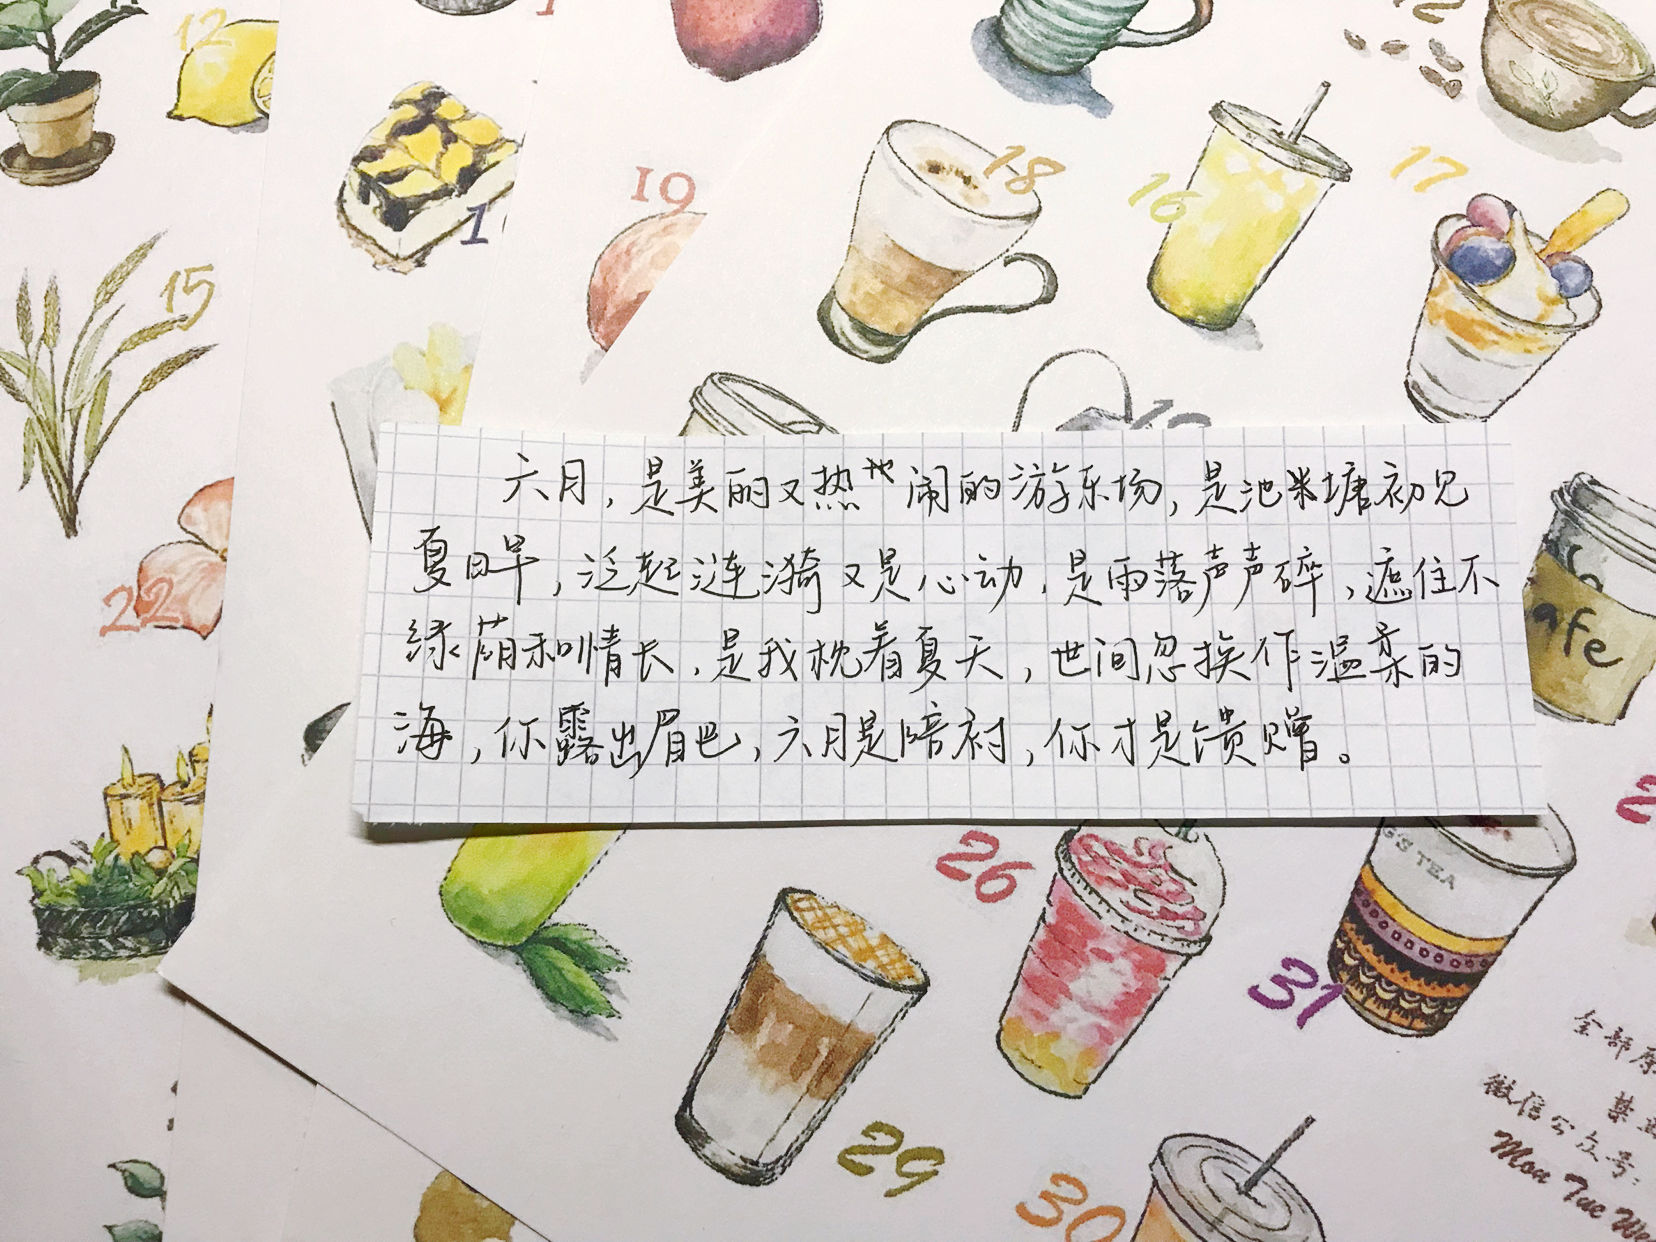 12
18
16
17
19
15
六月，是美丽又热闹的游乐场，是池塘初见
夏日早，泛起涟漪又是心动，是雨落声声碎，遮住不
绿荫和情长，是我枕着夏天，世间忽换作温柔的
海，你露出眉，六月是暗衬，你才是馈赠。
afe
22
26
'S TEA
31
29
30
全部原
禁
微信公众号：
Mon Tue We